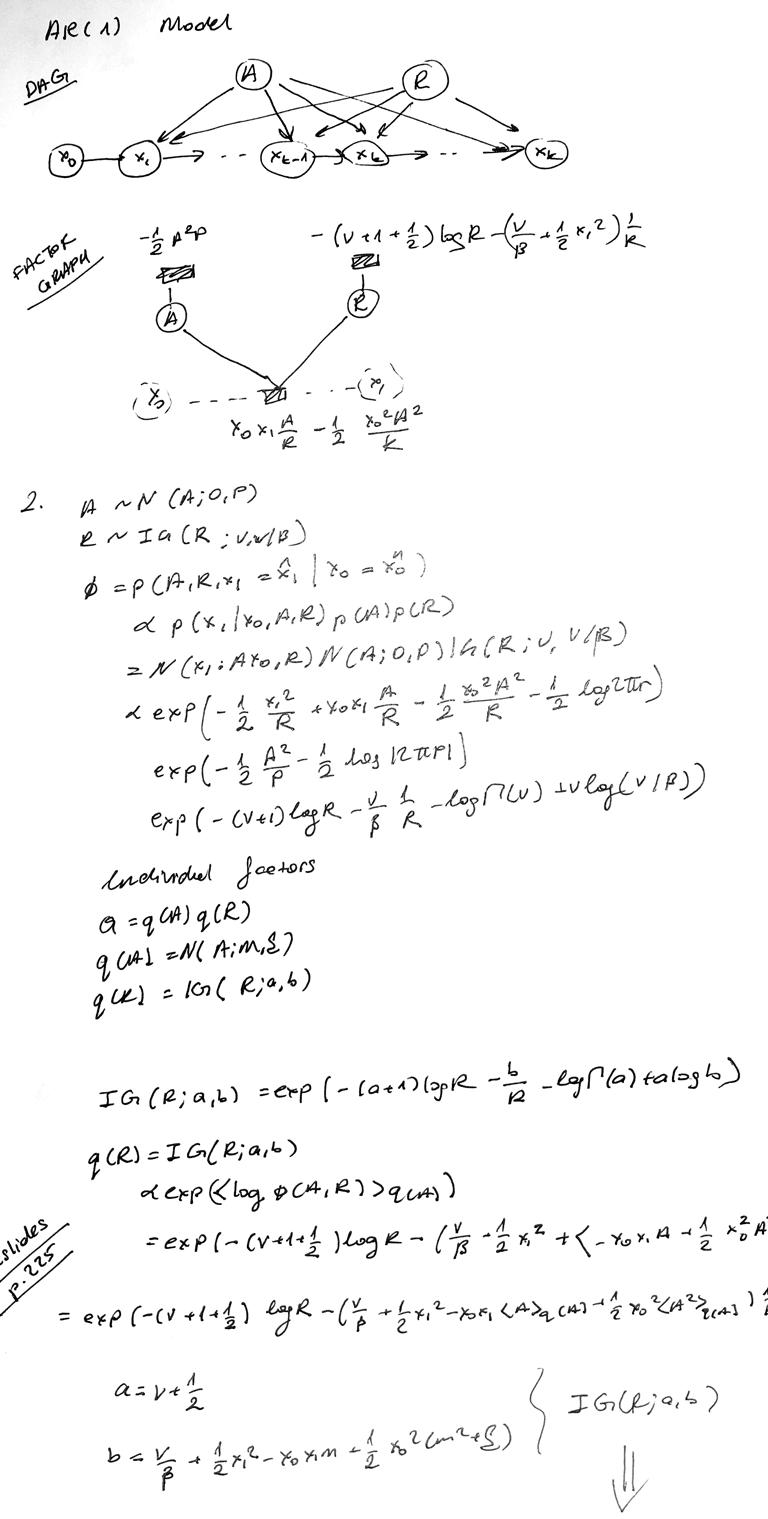 AR(1) Model
DAG
A R
x₀ x₁ ... x_{k-1} x_k ... x_K
FACTOR GRAPH
-½ A²P
-(ν+1+½) log R -(ν/β + ½ x₁²) 1/R
A R
x₀ ---- ...- x₁
x₀x₁ A/R - ½ x₀²A²/R
2. A ~ N(A;0,P)
R ~ IG(R;ν,ν/β)
φ = p(A,R,x₁ = x̂₁ | x₀ = x̂₀)
∝ p(x₁|x₀,A,R) p(A) p(R)
= N(x₁;Ax₀,R) N(A;0,P) IG(R;ν,ν/β)
∝ exp(-½ x₁²/R + x₀x₁ A/R - ½ x₀²A²/R - ½ log 2πr)
exp(-½ A²/P - ½ log |2πP|)
exp(-(ν+1) log R - ν/β 1/R - log Γ(ν) + ν log(ν/β))
Individual factors
Q = q(A) q(R)
q(A) = N(A;m,Σ)
q(R) = IG(R;a,b)
IG(R;a,b) = exp(-(a+1) log R - b/R - log Γ(a) + a log b)
q(R) = IG(R;a,b)
∝ exp(<log φ(A,R)>q(A))
slides p.225
= exp(-(ν+1+½) log R - (ν/β + ½ x₁² + <-x₀x₁A + ½ x₀²A
= exp(-(ν+1+½) log R - (ν/β + ½ x₁² - x₀x₁<A>q(A) + ½ x₀²<A²>q(A))
a = ν + ½
IG(R;a,b)
b = ν/β + ½ x₁² - x₀x₁m + ½ x₀²(m²+Σ)